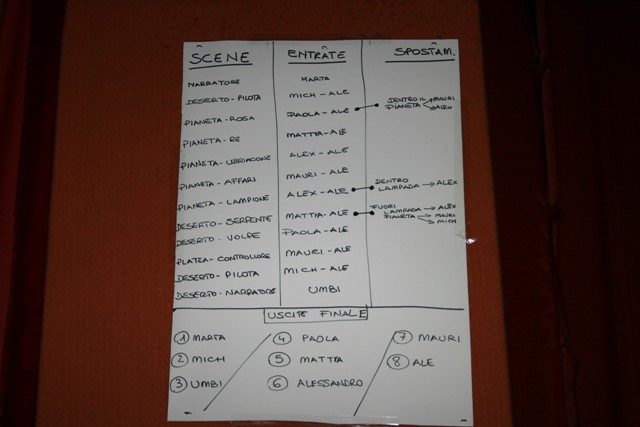 SCENE ENTRATE SPOSTAM.
NARRATORE MARTA
DESERTO-PILOTA MICH-ALE
PIANETA-ROSA PAOLA-ALE DENTRO IL PIANETA → MAURI → ALEX
PIANETA-RE MATTIA-ALE
PIANETA-UBRIACONE ALEX-ALE
PIANETA-AFFARI MAURI-ALE
PIANETA-LAMPIONE ALEX-ALE DENTRO LAMPADA → ALEX
DESERTO-SERPENTE MATTIA-ALE FUORI LAMPADA → ALEX PIANETA → MAURI → MICH
DESERTO-VOLPE PAOLA-ALE
PLATEA-CONTROLLORE MAURI-ALE
DESERTO-PILOTA MICH-ALE
DESERTO-NARRATORE UMBI
USCITE FINALE
1 MARTA 4 PAOLA 7 MAURI
2 MICH 5 MATTIA 8 ALE
3 UMBI 6 ALESSANDRO